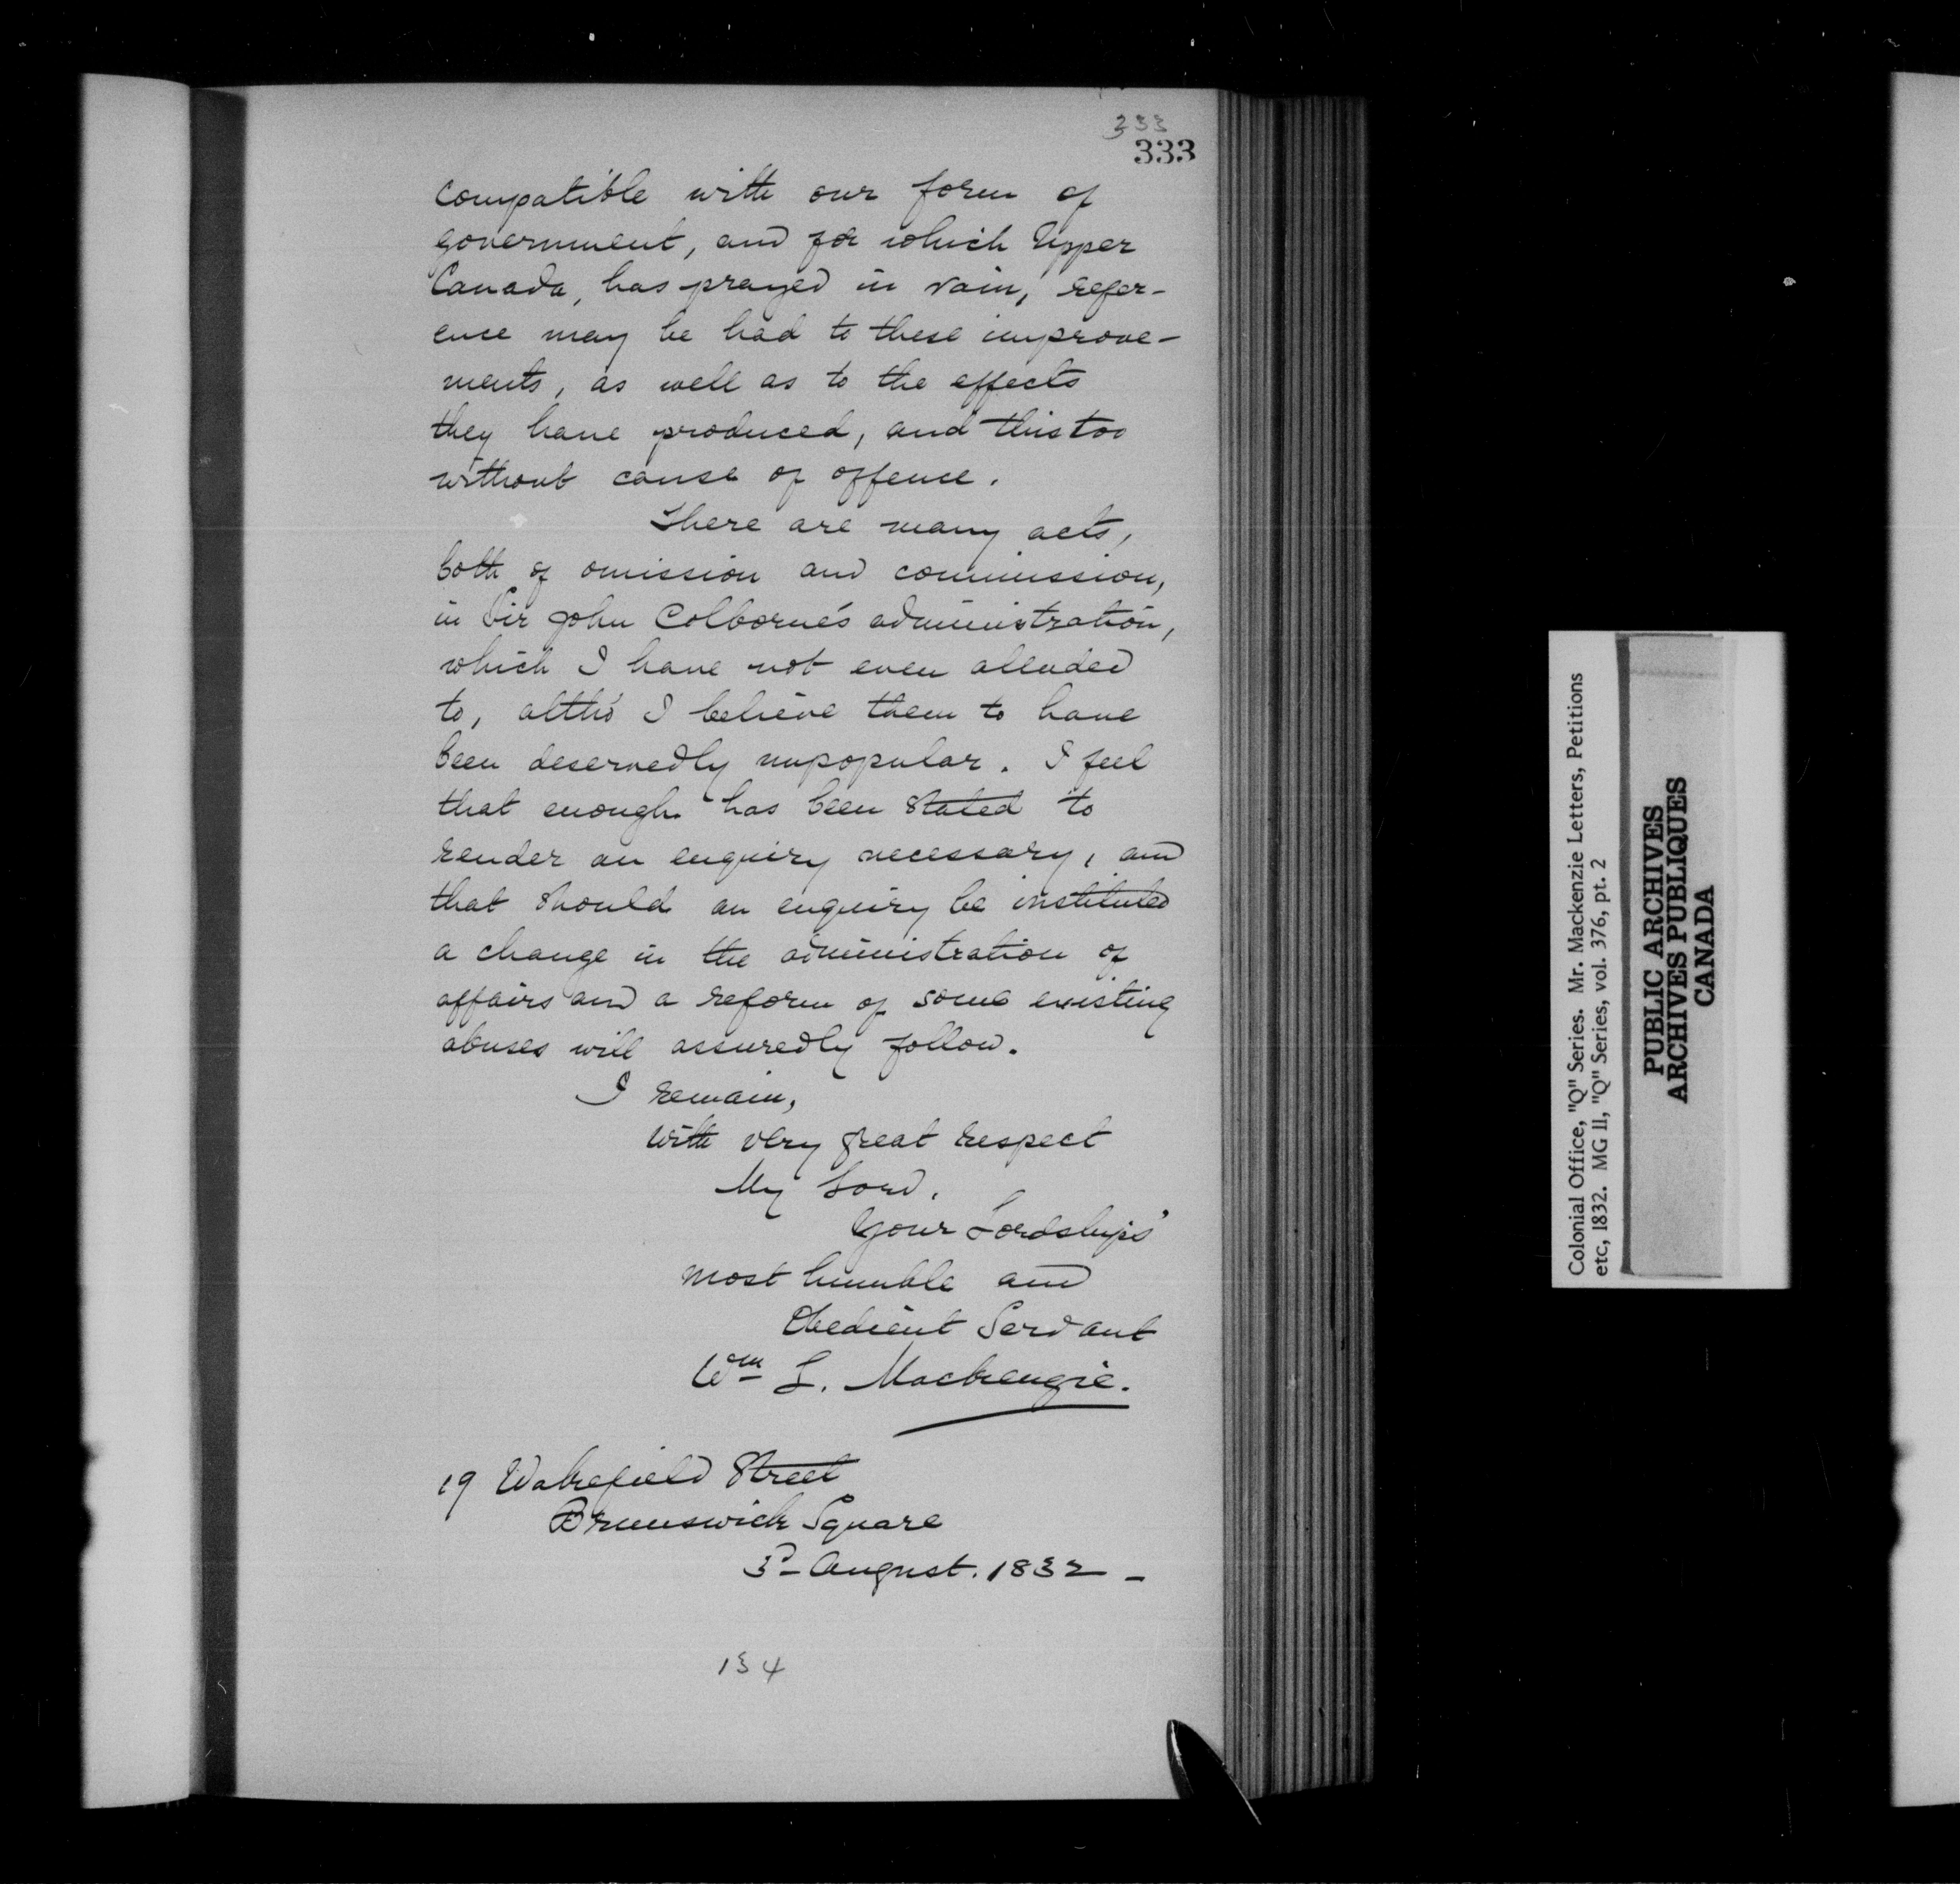 333
333
compatible with our form of
government, and for which Upper
Canada, has prayed in vain, refer-
ence may be had to these improve-
ments, as well as to the effects
they have produced, and this too
without cause of offence.
There are many acts,
both of omission and commission,
in Sir John Colborne's administration,
which I have not even alluded
to, altho' I believe them to have
been deservedly unpopular. I feel
that enough has been stated to
render an enquiry necessary, and
that should an enquiry be instituted
a change in the administration of
affairs and a reform of some existing
abuses will assuredly follow.
I remain,
with very great respect
My Lord,
Your Lordships'
most humble and
Obedient Servant
Wm L. Mackenzie.
19 Wakefield Street
Brunswick Square
3d August. 1832 -
134
Colonial Office, "Q" Series. Mr. Mackenzie Letters, Petitions
etc, 1832. MG 11, "Q" Series, vol. 376, pt. 2
PUBLIC ARCHIVES
ARCHIVES PUBLIQUES
CANADA